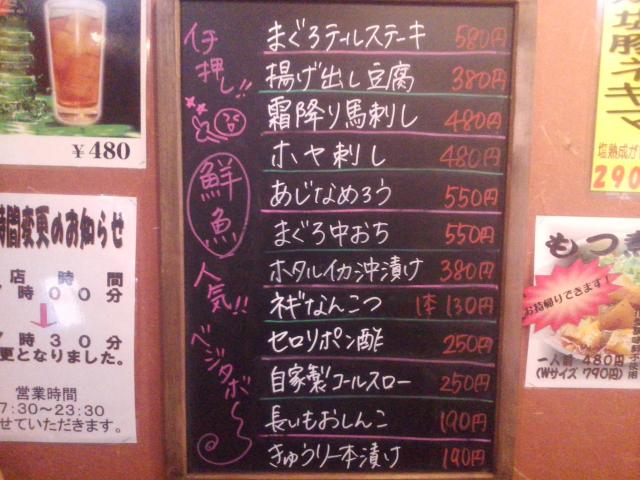 イチ押し!!
鮮魚
人気!!
ベジタボ〜
まぐろテールステーキ 580円
揚げ出し豆腐 380円
霜降り馬刺し 480円
ホヤ刺し 480円
あじなめろう 550円
まぐろ中おち 550円
ホタルイカ沖漬け 380円
ネギなんこつ 1本 130円
セロリポン酢 250円
自家製コールスロー 250円
長いもおしんこ 190円
きゅうり一本漬け 190円
¥480
時間変更のお知らせ
店時間
時00分
時30分
更となりました。
営業時間
7:30〜23:30
せていただきます。
ネギマ
塩熟成が
290
もつ煮
お持帰りできます!
一人前 480円
(Wサイズ 790円)